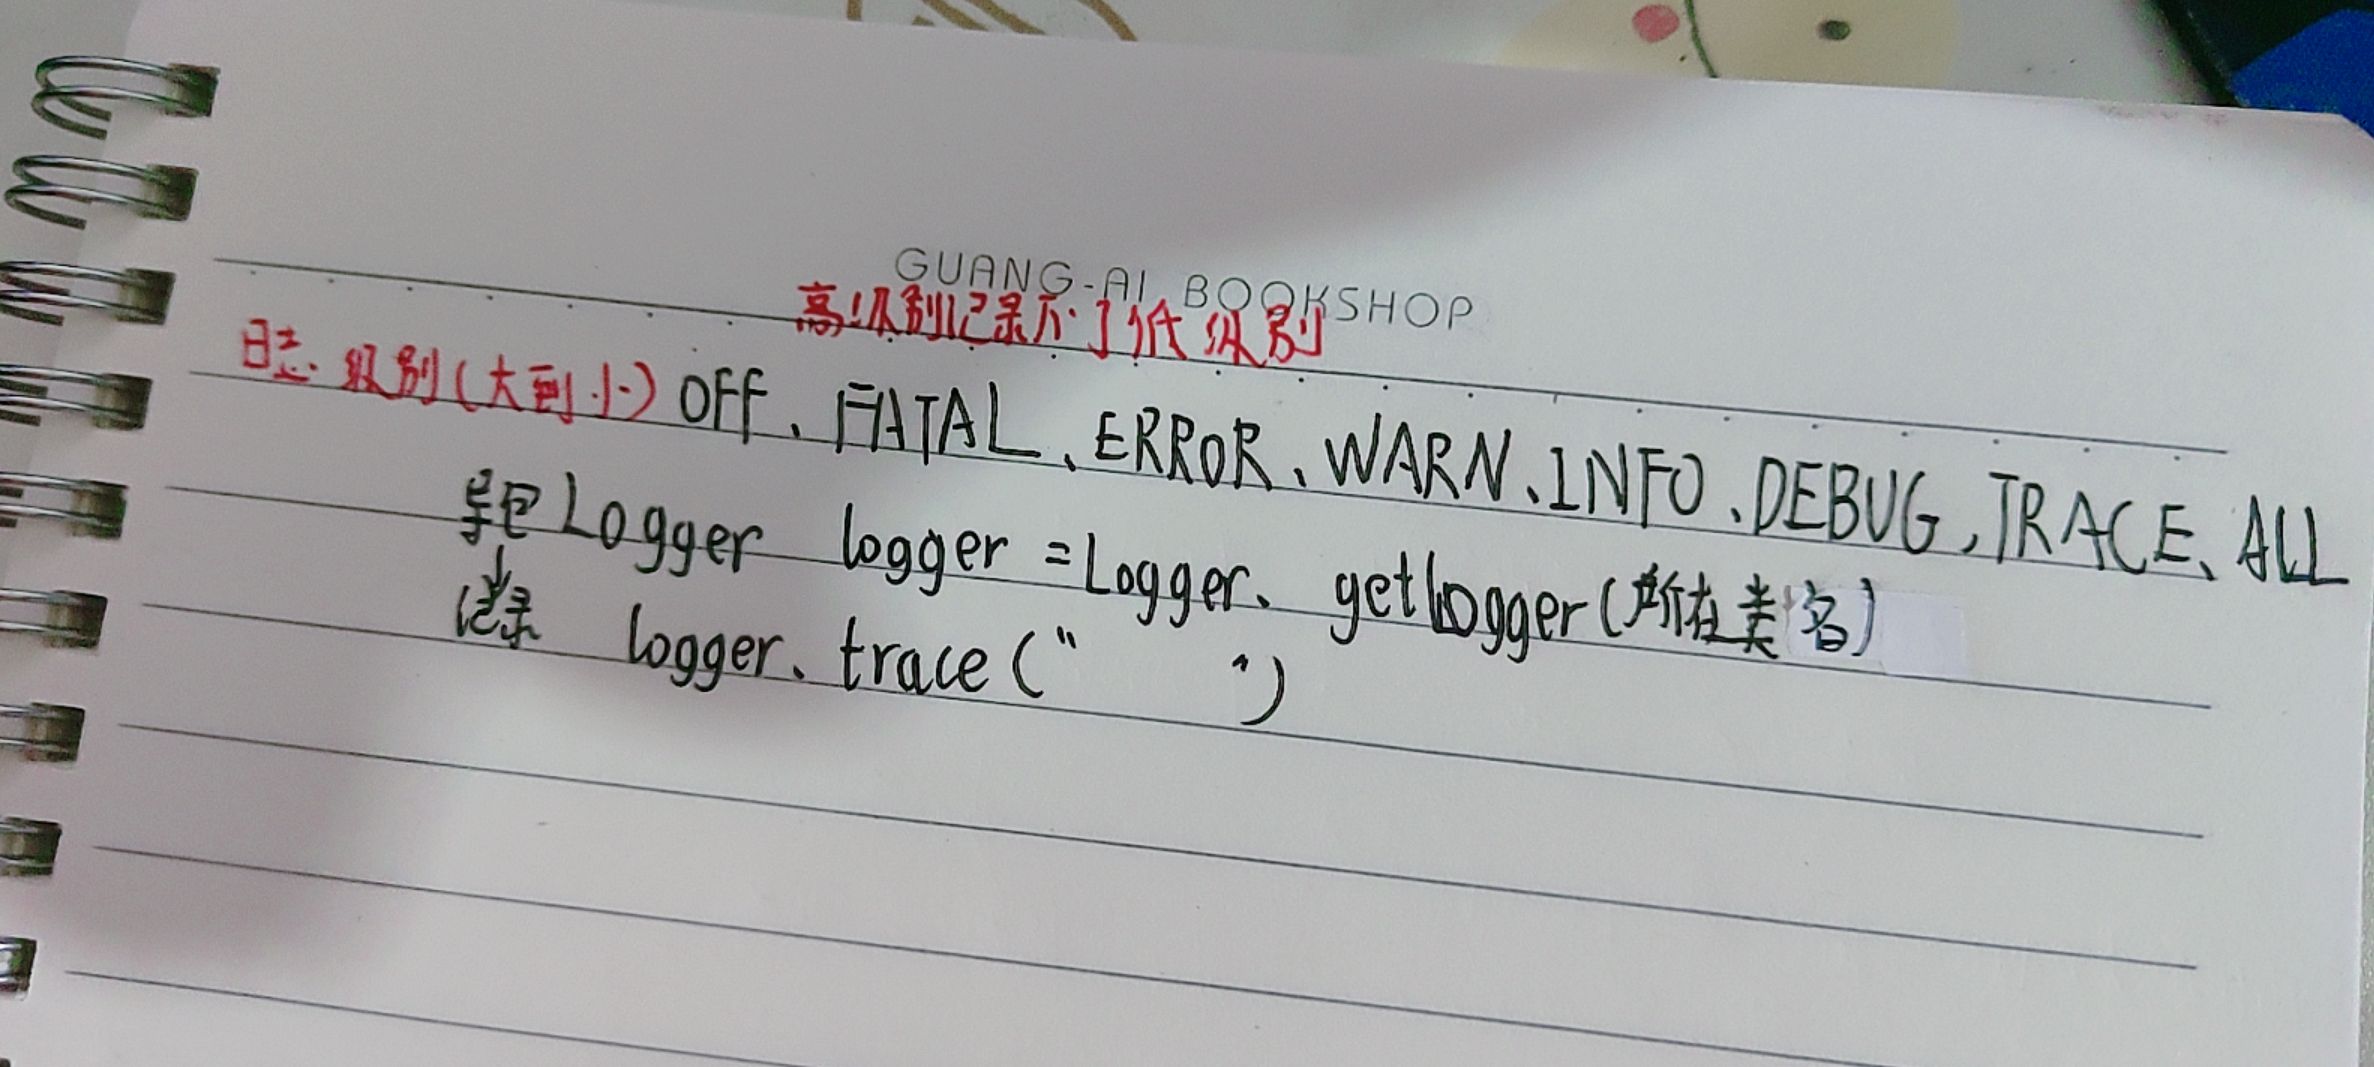 GUANG-AI BOOKSHOP
高级别记录不了低级别
日志级别(大到小) OFF、FATAL、ERROR、WARN、INFO、DEBUG,TRACE、ALL
导包 Logger logger = Logger、getLogger(所在类名)
记录 logger、trace(" ")